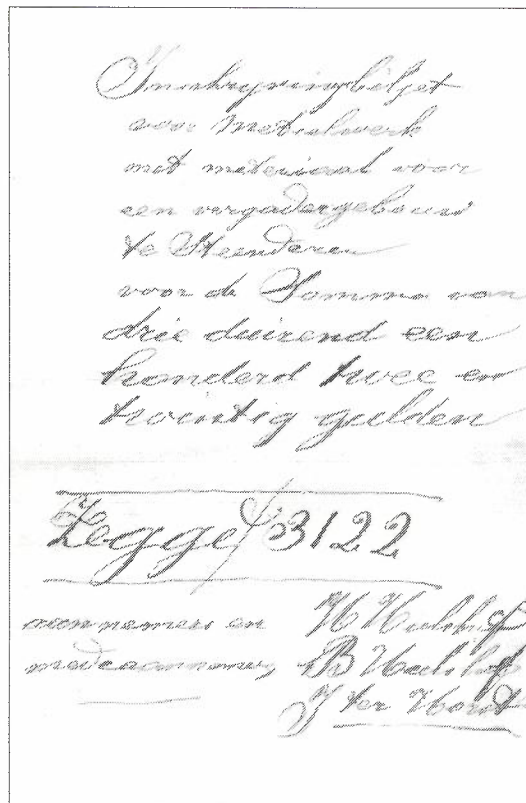 Inschrijvingbiljet
voor metselwerk
met materiaal voor
een vergadergebouw
te Steenderen
voor de Somma van
drie duizend een
honderd twee en
twintig gulden
Zegge ƒ 3122
aannemers en
medeaannemers,
H
B
J ter Horst